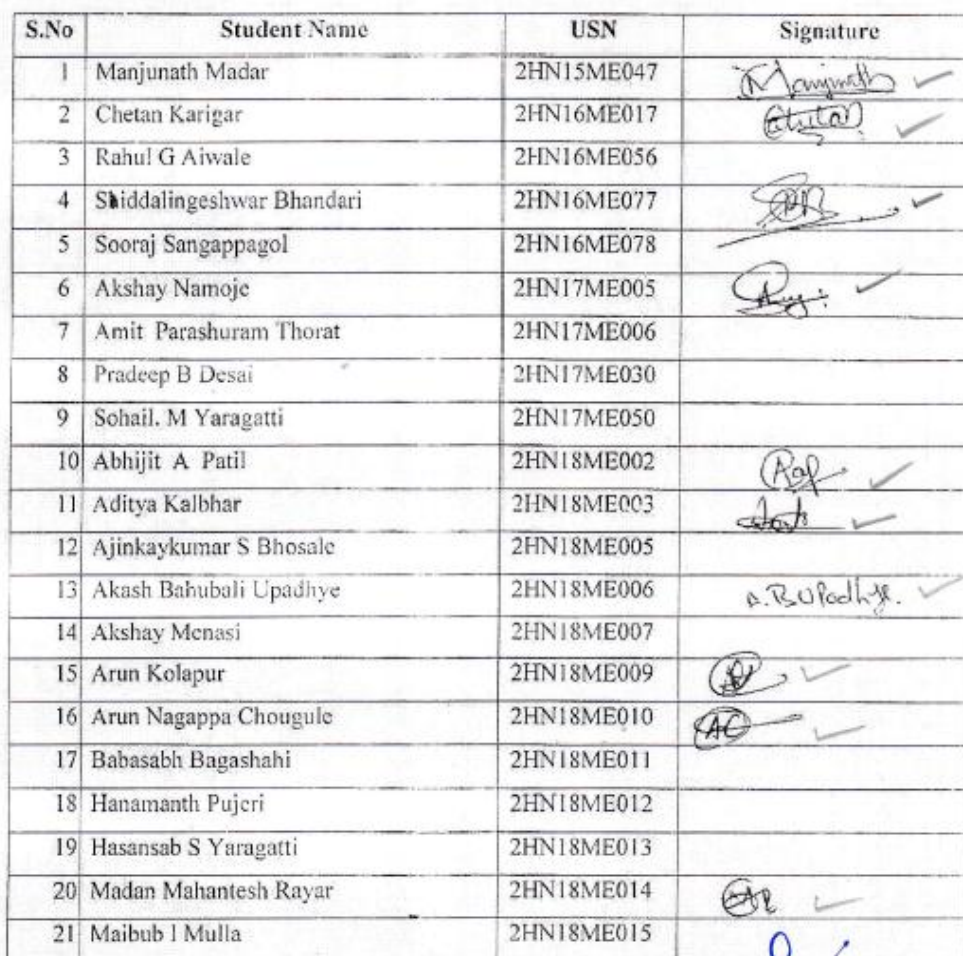 S.No Student Name USN Signature
1 Manjunath Madar 2HN15ME047 Manjunath
2 Chetan Karigar 2HN16ME017 Chetan
3 Rahul G Aiwale 2HN16ME056
4 Shiddalingeshwar Bhandari 2HN16ME077
5 Sooraj Sangappagol 2HN16ME078
6 Akshay Namoje 2HN17ME005
7 Amit Parashuram Thorat 2HN17ME006
8 Pradeep B Desai 2HN17ME030
9 Sohail. M Yaragatti 2HN17ME050
10 Abhijit A Patil 2HN18ME002
11 Aditya Kalbhar 2HN18ME003
12 Ajinkaykumar S Bhosale 2HN18ME005
13 Akash Bahubali Upadhye 2HN18ME006 A.B.Upadhye.
14 Akshay Menasi 2HN18ME007
15 Arun Kolapur 2HN18ME009
16 Arun Nagappa Chougule 2HN18ME010 AC
17 Babasabh Bagashahi 2HN18ME011
18 Hanamanth Pujeri 2HN18ME012
19 Hasansab S Yaragatti 2HN18ME013
20 Madan Mahantesh Rayar 2HN18ME014
21 Maibub I Mulla 2HN18ME015